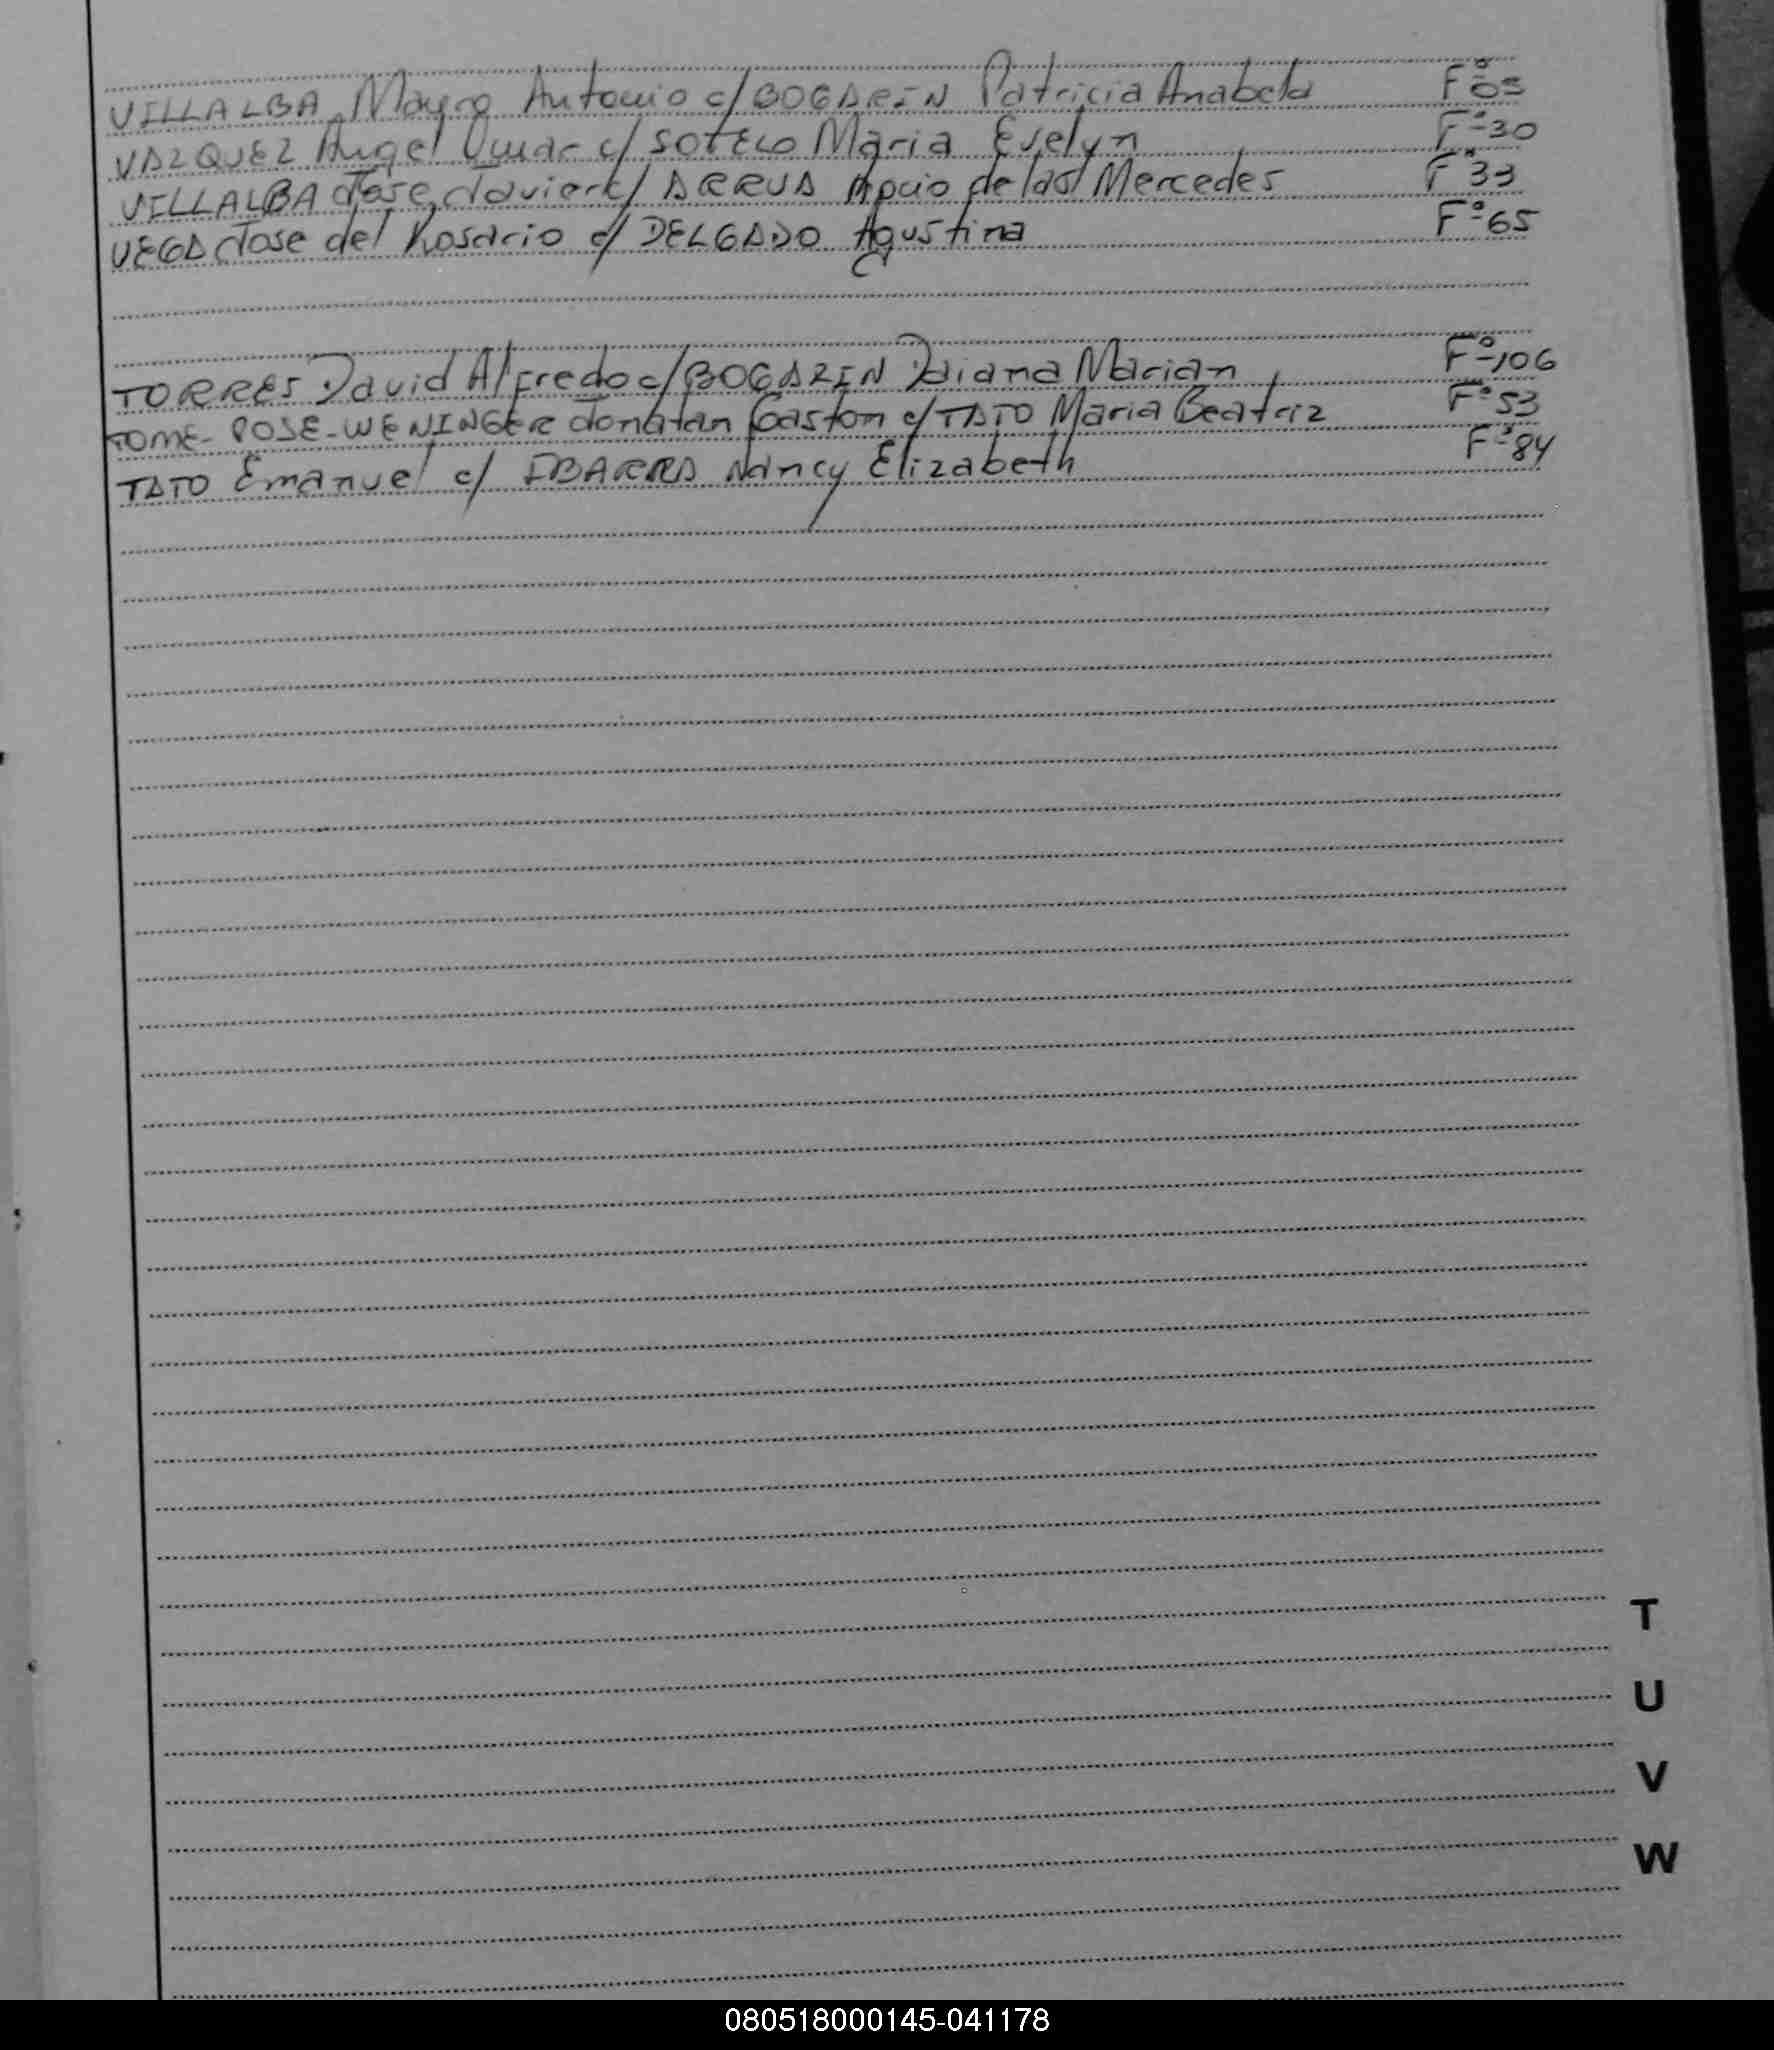 VILLALBA Mayro Antonio c/ BOGARIN Patricia Anabela F° 03
VAZQUEZ Angel Omar c/ SOTELO Maria Evelyn F° 30
VILLALBA Jose Javier c/ ARRUA de las Mercedes F° 33
VEGA Jose del Rosario c/ DELGADO Agustina F° 65
TORRES David Alfredo c/ BOGARIN Daiana Marian F° 106
TOME-POSE-WENINGER Jonatan Gaston c/ TATO Maria Beatriz F° 53
TATO Emanuel c/ IBARRA Nancy Elizabeth F° 84
T
U
V
W
080518000145-041178